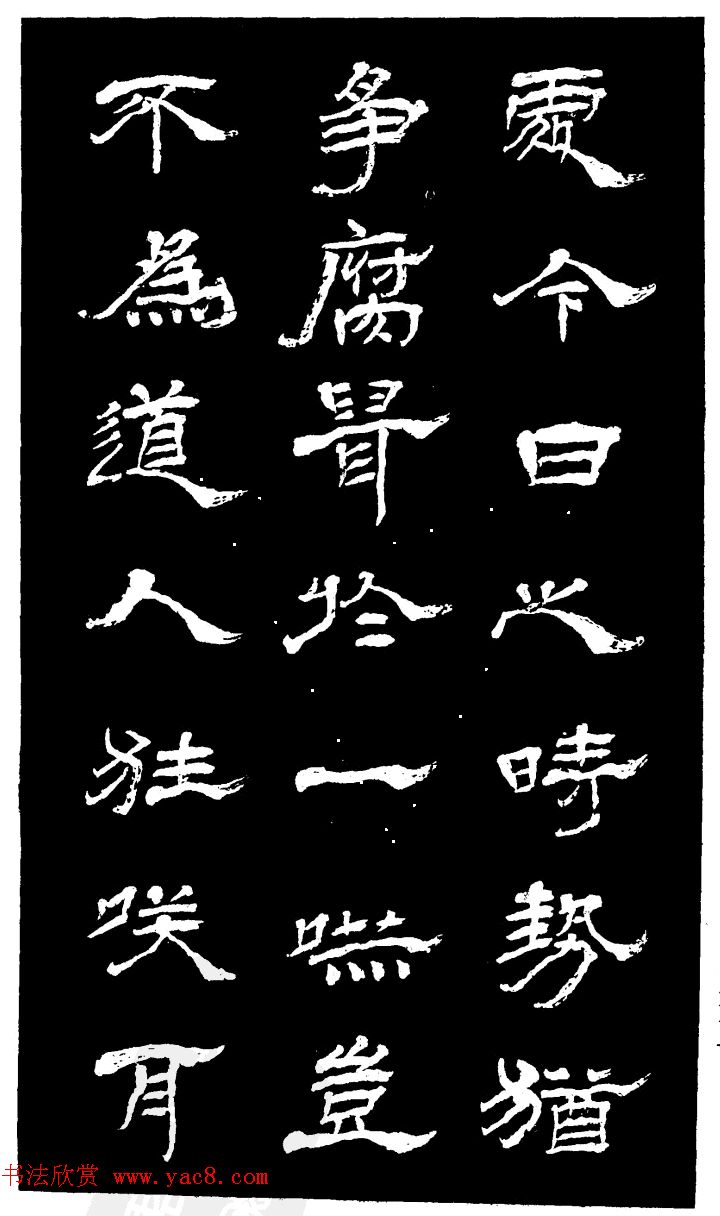 處今日之時勢猶
爭腐鼠於一嚇豈
不為道人狂咲耳
书法欣赏 www.yac8.com